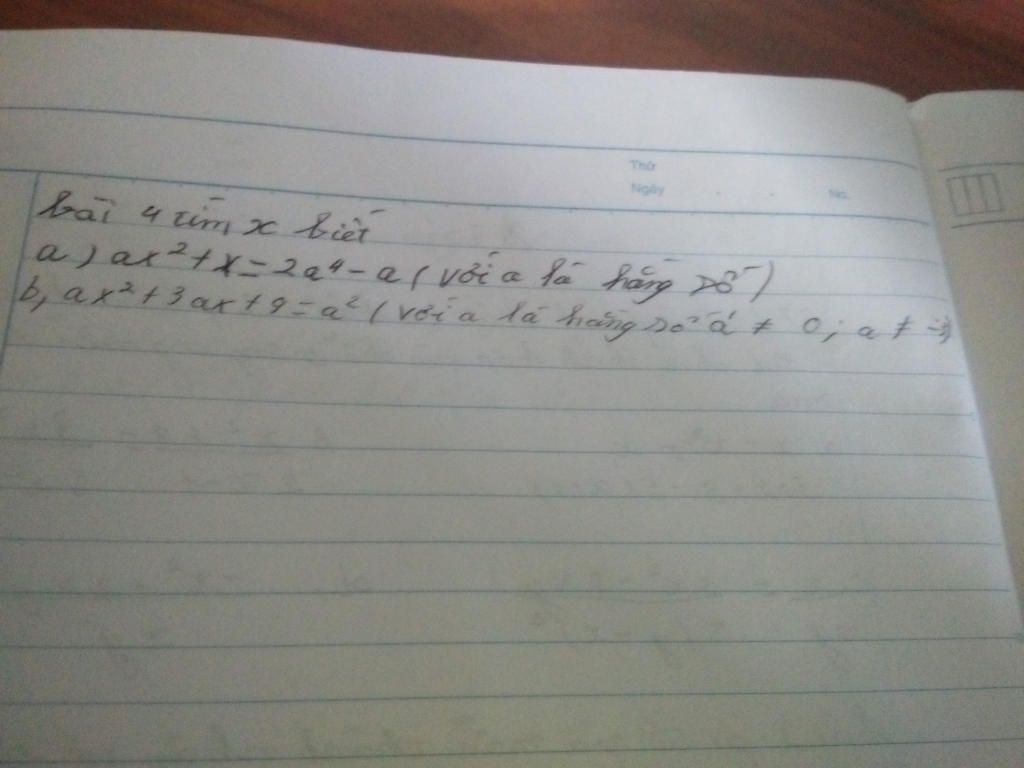 Thứ
Ngày No.
bài 4 tìm x biết
a) ax² + x = 2a⁴ - a (với a là hằng số)
b, ax² + 3ax + 9 = a² (với a là hằng số a ≠ 0; a ≠ -3)